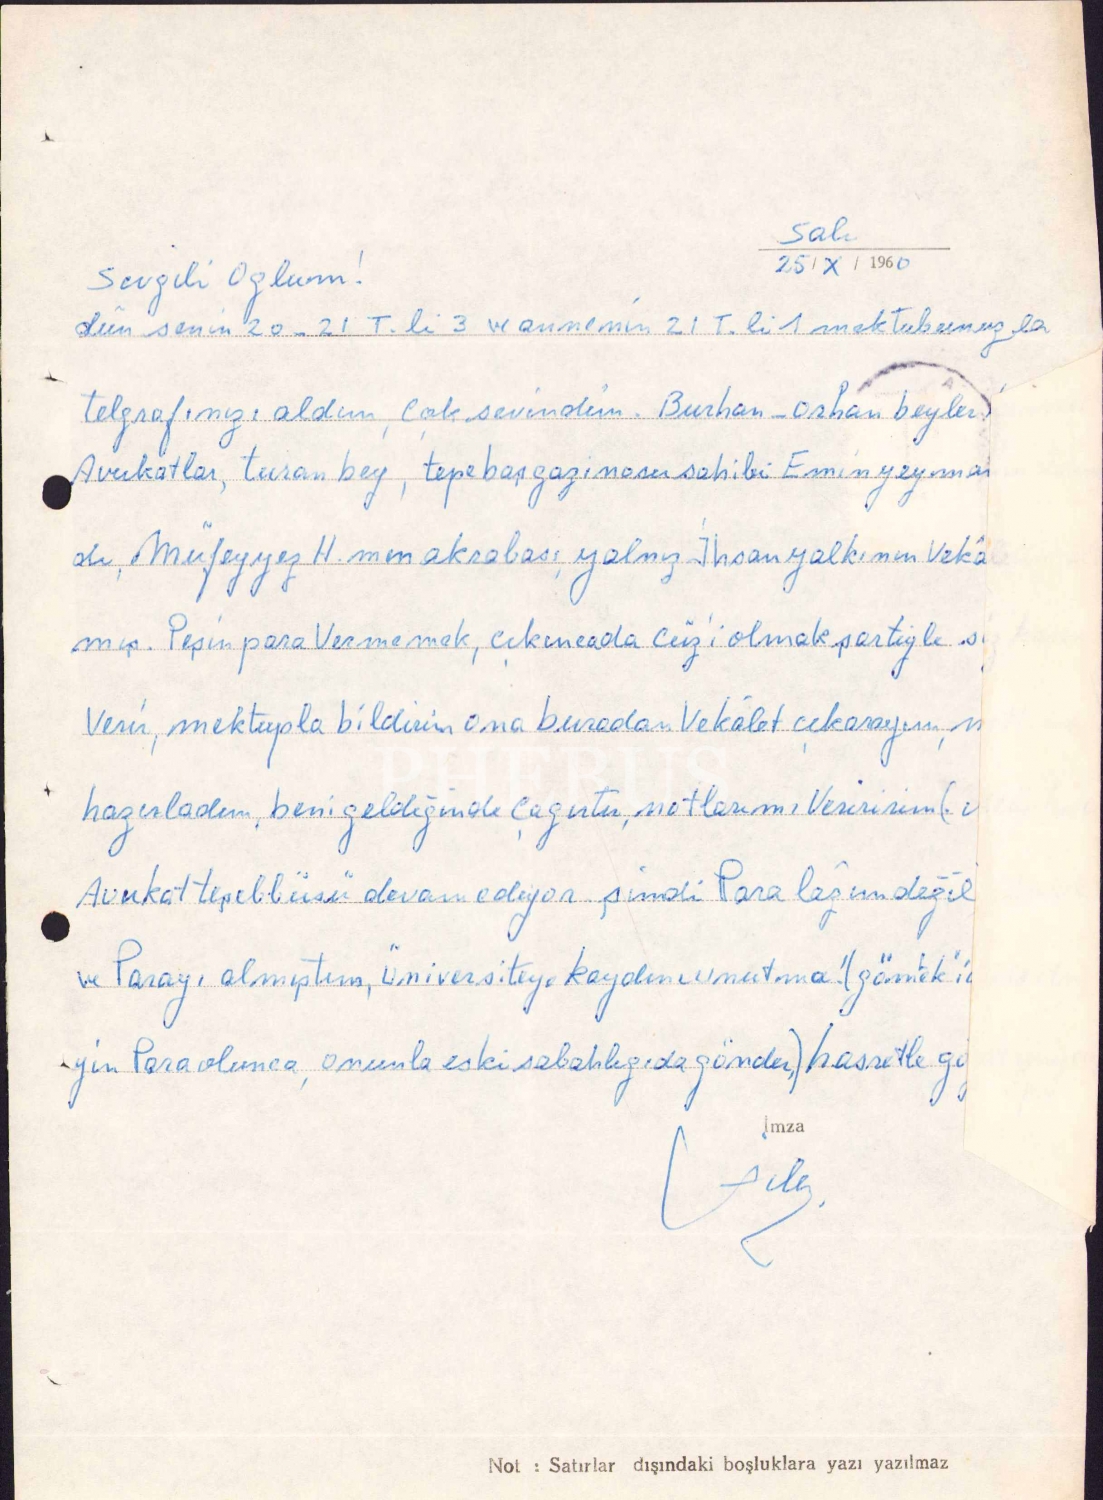 Salı
25 / X / 1960
Sevgili Oğlum!
dün senin 20-21 T. li 3 ve annenin 21 T. li 1 mektubunuzla
telgrafınızı aldım, çok sevindim. Burhan - Orhan beyler
Avukatlar, turan bey, tepebaşgazinosu sahibi Emin
dı, Müfeyyez H. mın akrabası, yalnız İhsan yalkının Vekâ
mış. Peşin para Vermemek, çıkıncada Cüz'i olmak şartiyle
Verir, mektupla bildirin ona buradan Vekâlet çıkarayım,
hazırladım, beni geldiğinde çağırtır, notlarımı Veririrım (
Avukat teşebbüsü devam ediyor şimdi Para lâzım değil
ve Parayı almıştım, üniversiteye kaydını unutma! (
yin Para olunca, onunla eski sabahlığıda gönder,) hasretle
İmza
PHEBUS
Not : Satırlar dışındaki boşluklara yazı yazılmaz